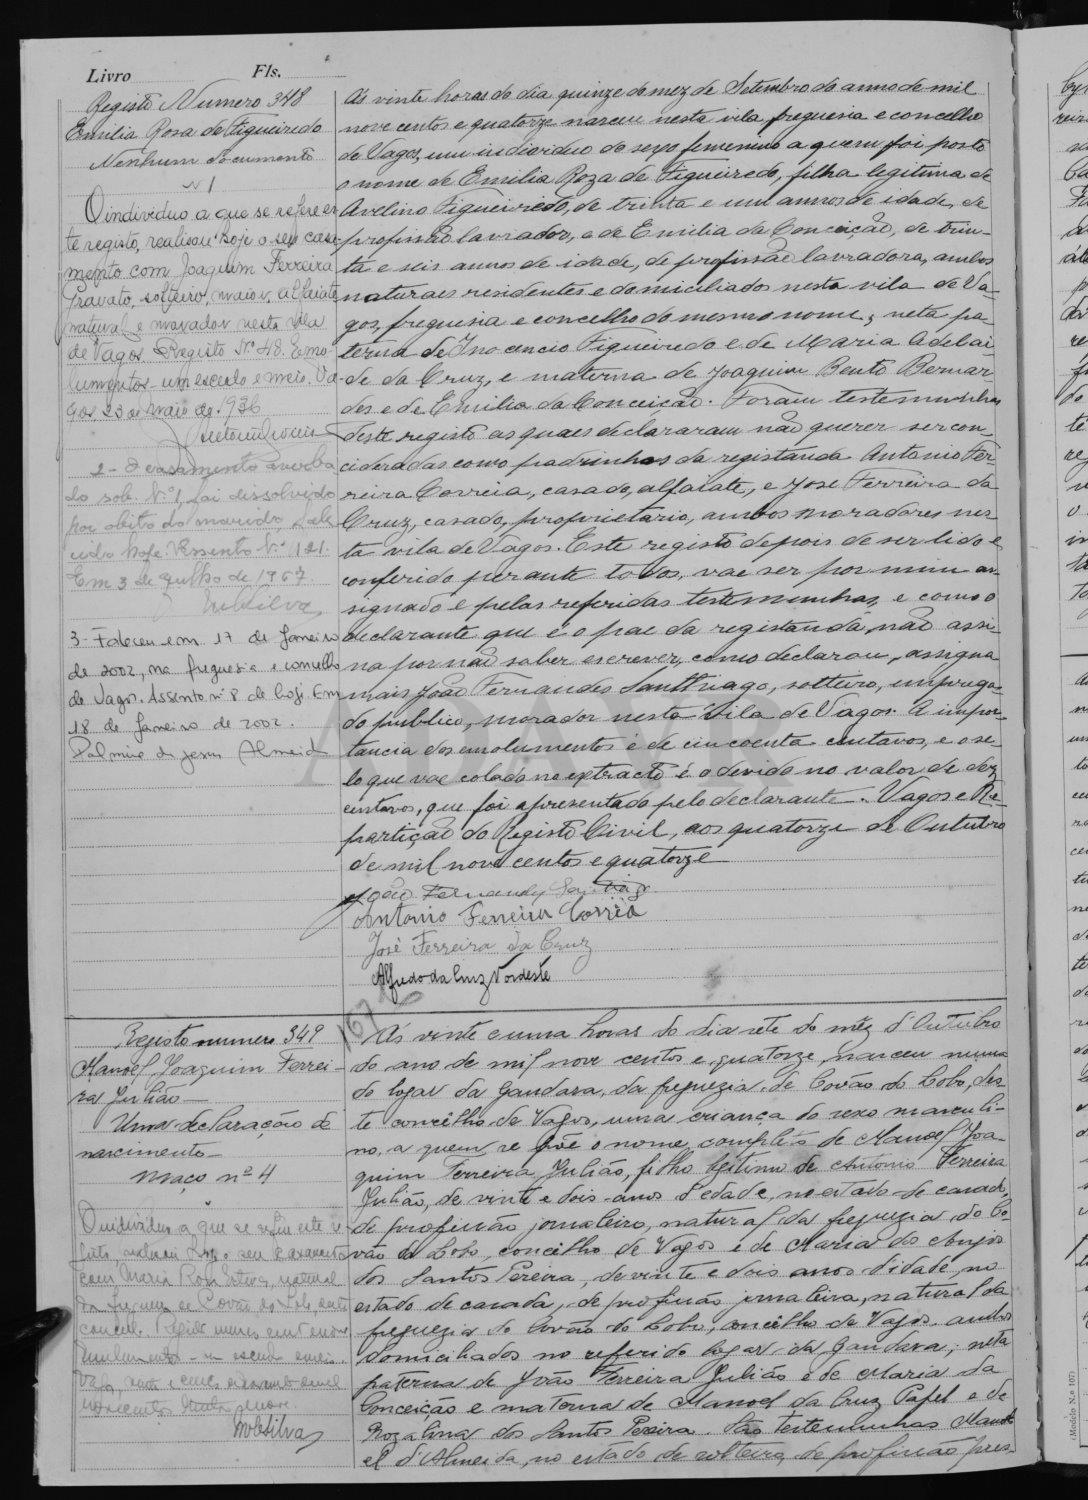 Livro Fls.
Registo Numero 348
Emilia Rosa de Figueiredo
Nenhum documento
Nº 1
O individuo a que se refere es-
te registo, realisou hoje o seu casa-
mento com Joaquim Ferreira
Gravato, solteiro, maior, alfaiate
natural e morador nesta vila
de Vagos. Registo Nº 48. Emo-
lumentos um escudo e meio. Va-
gos, 23 de maio de 1936
2 - O casamento averba
do sob Nº 1, foi dissolvido
por obito do marido, fale
cido hoje. Assento Nº 121.
Em 3 de Julho de 1967.
3 - Faleceu em 17 de Janeiro
de 2002, na freguesia e concelho
de Vagos. Assento nº 8 de hoje. Em
18 de Janeiro de 2002.
Palmira de Jesus Almeida
Ás vinte horas do dia quinze do mez de Setembro do anno de mil
nove centos e quatorze nasceu nesta vila freguesia e concelho
de Vagos, um individuo do sexo femenino a quem foi posto
o nome de Emilia Roza de Figueiredo, filha legitima de
Avelino Figueiredo, de trinta e um annos de idade, de
profissão lavrador, e de Emilia da Conceição, de trin-
ta e seis annos de idade, de profissão lavradora, ambos
naturaes residentes e domiciliados nesta vila de Va-
gos, freguesia e concelho do mesmo nome; neta pa-
terna de Inocencio Figueiredo e de Maria Adelai-
de da Cruz, e materna de Joaquim Bento Bernar-
des e de Emilia da Conceição. Foram testemunhas
deste registo as quaes declararam não querer ser con-
cideradas como padrinhos da registanda Antonio Fer-
reira Correia, casado, alfaiate, e José Ferreira da
Cruz, casado, proprietario, ambos moradores nes-
ta vila de Vagos. Este registo depois de ser lido e
conferido perante todos, vae ser por mim as-
signado e pelas referidas testemunhas, e como o
declarante que é o pae da registanda, não assi-
na por não saber escrever, como declarou, assigna
mais João Fernandes Santhiago, solteiro, emprega-
do publico, morador nesta vila de Vagos. A impor-
tancia dos emolumentos é de cincoenta centavos, e o se-
lo que vae colado no extracto é o devido no valor de dez
centavos, que foi apresentado pelo declarante. Vagos e Re-
partição do Registo Civil, aos quatorze de Outubro
de mil nove centos e quatorze
João Fernandes Santiago
Antonio Ferreira Corrêa
José Ferreira da Cruz
Alfredo da Cruz Nordeste
ADAVR
Registo numero 349
Manoel Joaquim Ferrei-
ra Julião
Uma declaração de
nascimento
Maço nº 4
O individuo a que se refere este re
gisto, realisou hoje o seu casamento
com Maria Rosa Silva, natural
da freguesia de Covão do Lobo, deste
MdeSilva
Ás vinte e uma horas do dia sete do mêz d'Outubro
do ano de mil nove centos e quatorze, nasceu numa
do logar da Gandara, da freguezia de Covão do Lobo, des-
te concêlho de Vagos, uma criança do sexo masculi-
no, a quem se põe o nome completo de Manoel Joa-
quim Ferreira Julião, filho legitimo de Antonio Ferreira
Julião, de vinte e dois anos d'edade, no estado de casado,
de profissão jornaleiro, natural da freguezia do Co-
vão do Lobo, concêlho de Vagos e de Maria dos Anjos
dos Santos Pereira, de vinte e dois anos d'idade, no
estado de casada, de profissão jornaleira, natural da
freguezia do Covão do Lobo, concêlho de Vagos, ambos
domiciliados no referido logar da Gandara; neto
paterno de João Ferreira Julião e de Maria da
Conceição e materno de Manoel da Cruz Papel e de
Rozalina dos Santos Pereira. São testemunhas Mano-
el d'Almeida, no estado de solteiro, de profissão pres-
(Modelo N.º 107)